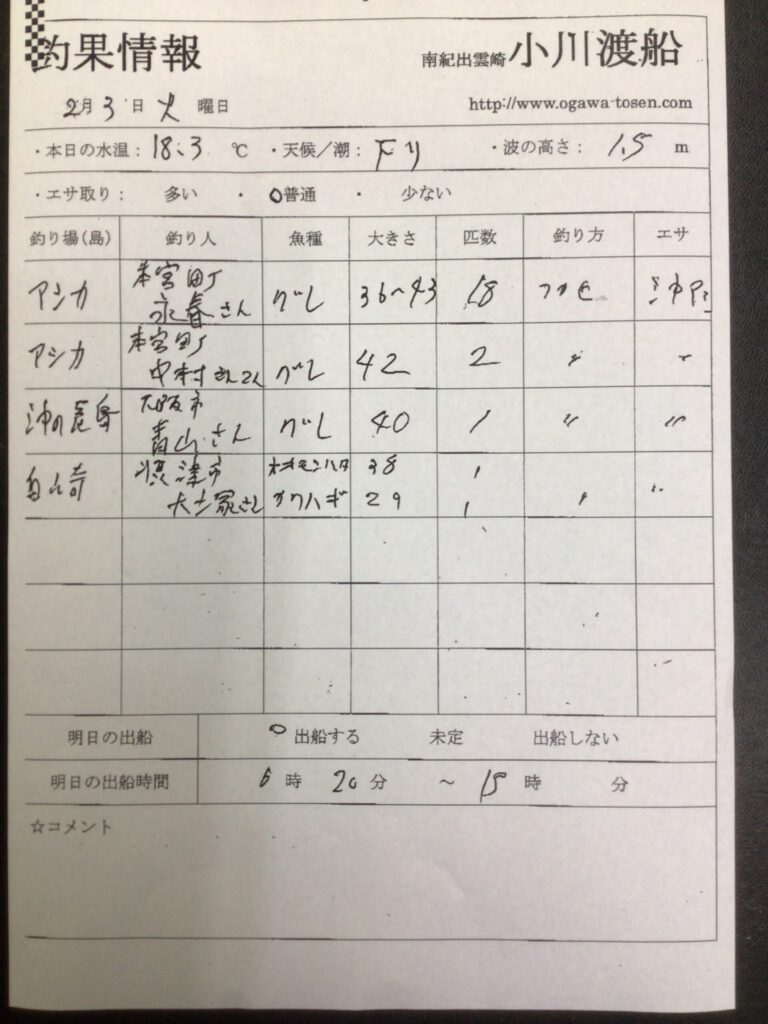 釣果情報
南紀出雲崎 小川渡船
2月 3日 火 曜日
http://www.ogawa-tosen.com
・本日の水温： 18.3 ℃ ・天候／潮： 下り ・波の高さ： 1.5 m
・エサ取り： 多い ・ 普通 ・ 少ない
釣り場（島） 釣り人 魚種 大きさ 匹数 釣り方 エサ
本宮町
アシカ 永春さん グレ 36〜43 18 フカセ 沖アミ
本宮町
アシカ 中村さん グレ 42 2 〃 〃
大阪市
青山さん グレ 40 1 〃 〃
摂津市 オオモンハタ 38 1
大塚さん カワハギ 29 1 〃 〃
明日の出船 出船する 未定 出船しない
明日の出船時間 6時 20分 〜 15時 分
☆コメント